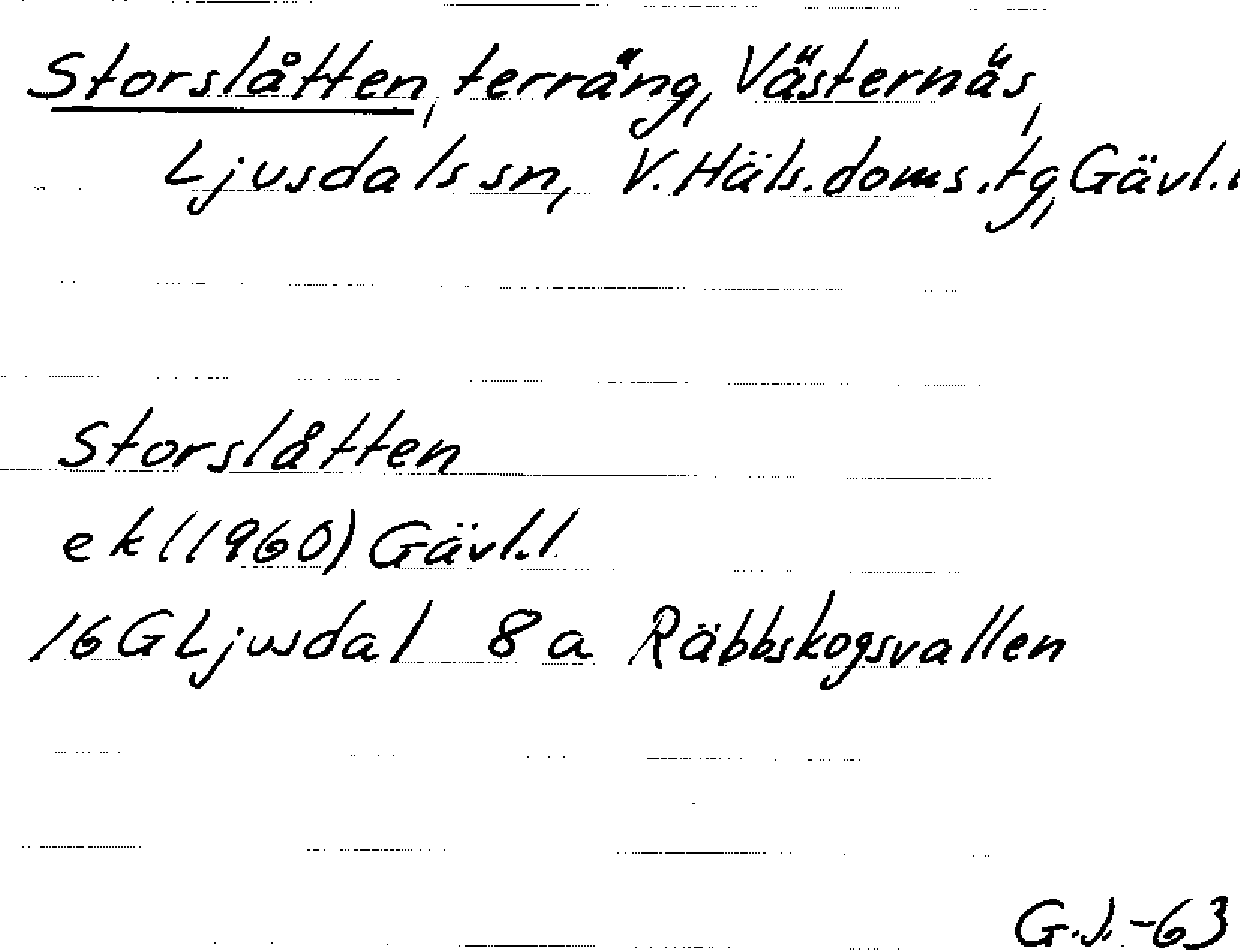 Storslåtten, terräng, Västernäs,
Ljusdals sn, V. Häls. doms. tg, Gävl. l
Storslåtten
ek (1960) Gävl. l.
16 G Ljusdal 8 a Räbbskogsvallen
G.J. -63